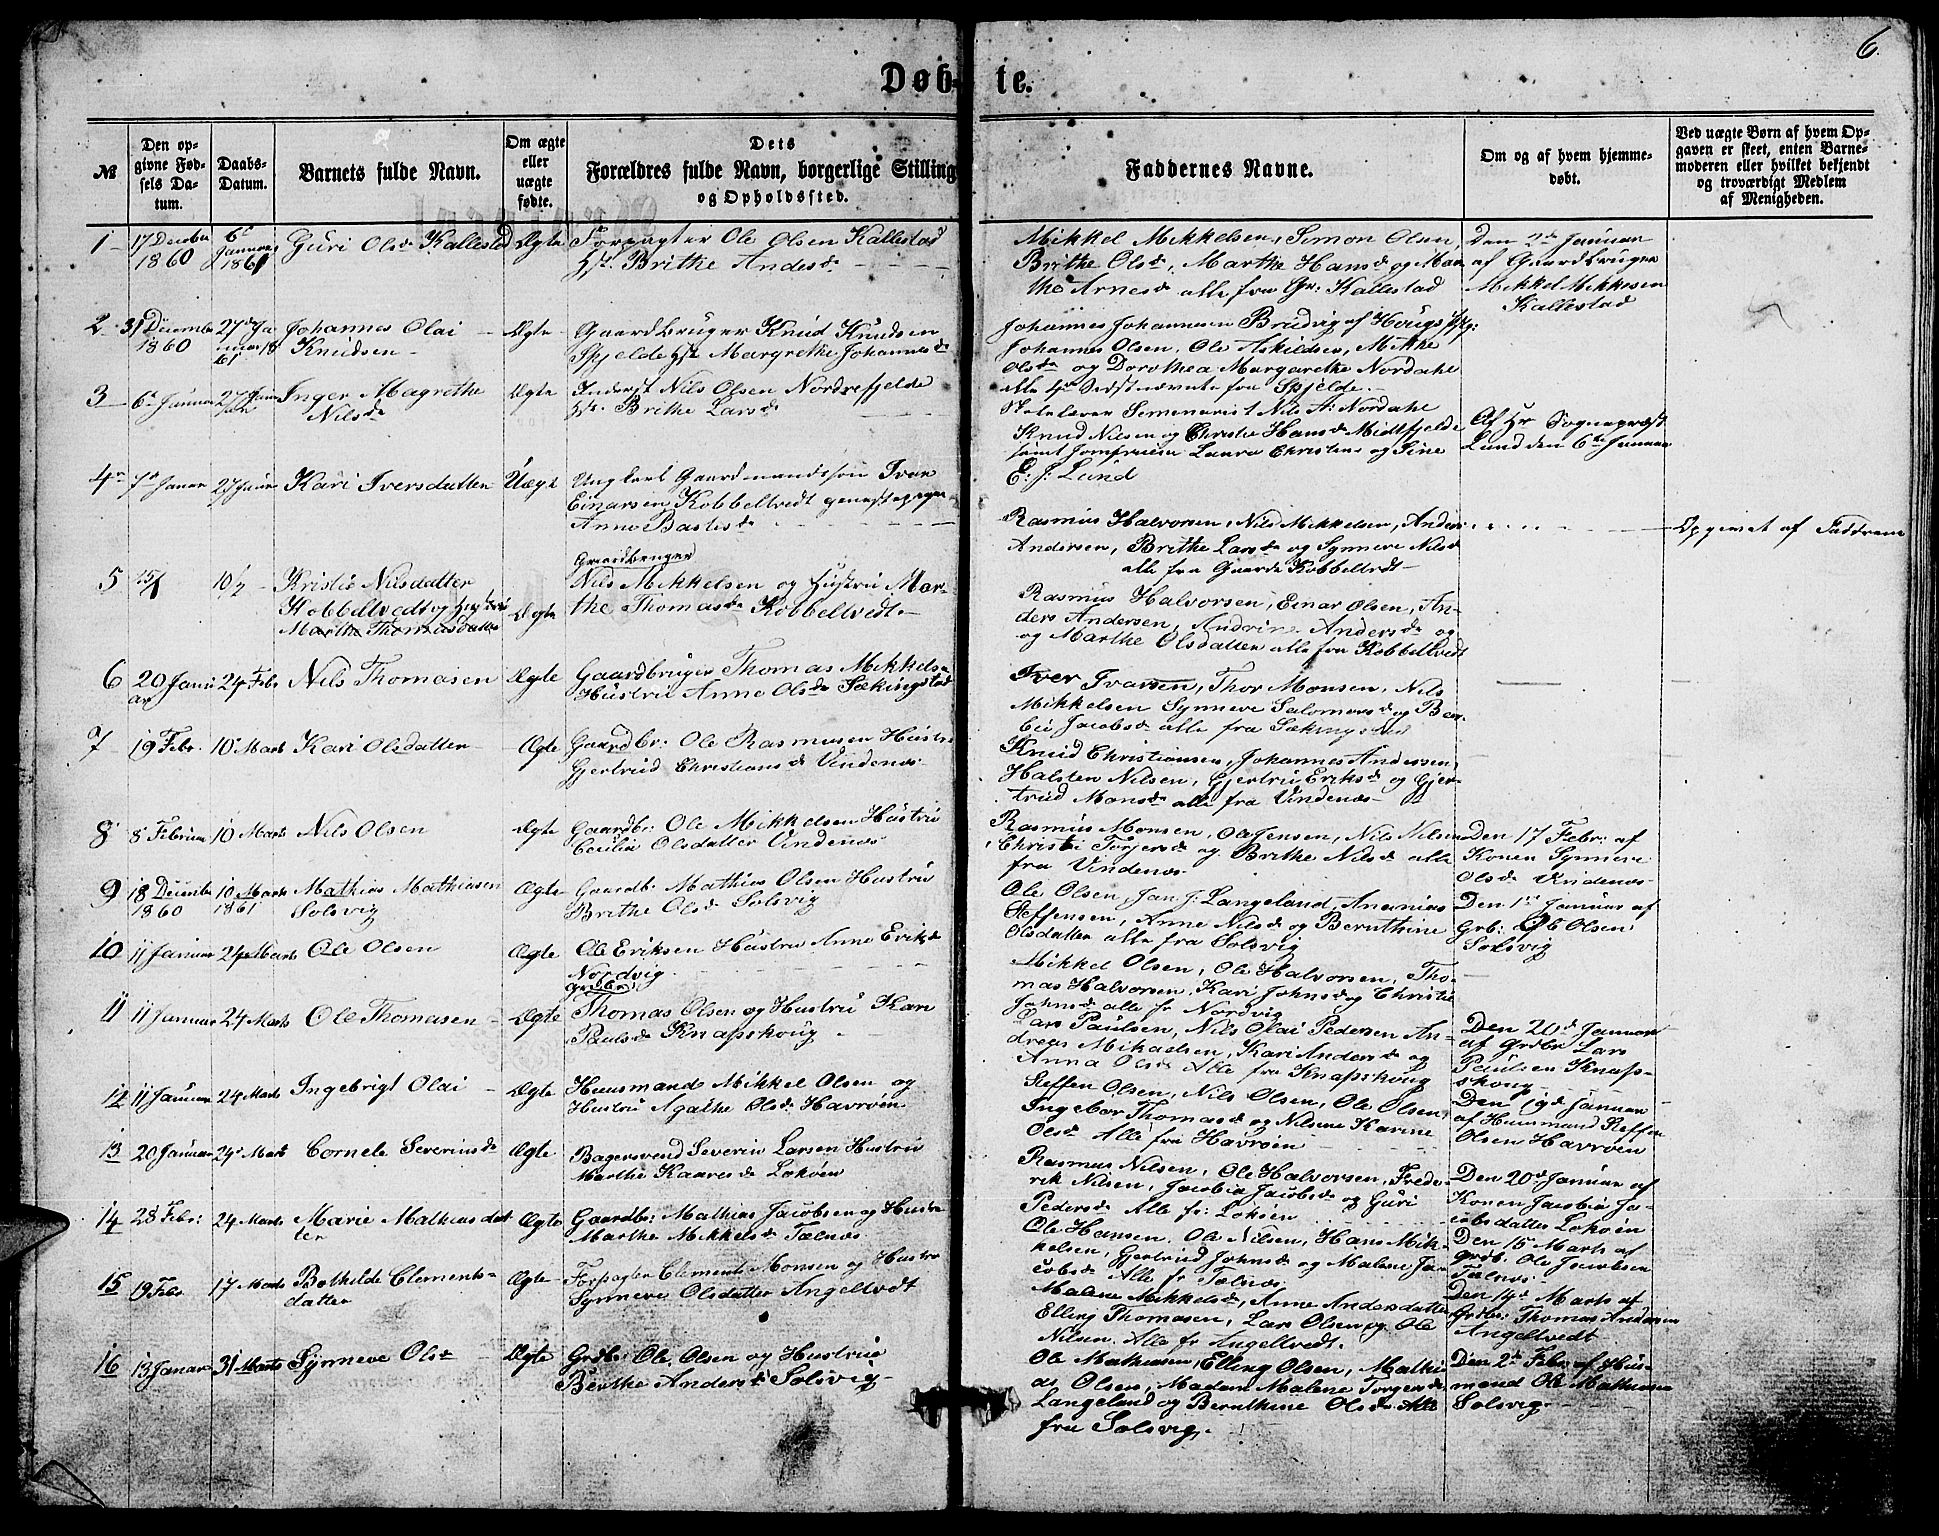 6
Døbte.
№
Den opgivne Fødsels Datum.
Daabs-Datum.
Barnets fulde Navn.
Om ægte eller uægte fødte.
Dets Forældres fulde Navn, borgerlige Stilling og Opholdssted.
Faddernes Navne.
Om og af hvem hjemmedøbt.
Ved uægte Børn af hvem Opgaven er skeet, enten Barnemoderen eller hvilket bekjendt og troværdigt Medlem af Menigheden.
1 17 December 1860
6te Januar 1861
Guri Olsd. Kallestad
Ægte
Forpagter Ole Olsen Kallestad
H. Brithe Andersd.
Mikkel Mikkelsen, Simon Olsen
Brithe Olsd., Marthe Hansd. og Mar
the Arnesd. alle fra Gr. Kallestad
Den 2de Januar
af Gaardbruger
Mikkel Mikkelsen
Kallestad
2 31 December 1860
27de Januar 1861
Johannes Olai
Knudsen
Ægte
Gaardbruger Knud Knudsen
Spjelde H. Margrethe Johannesd.
Johannes Johannesen Brudvig af Hougs
Johannes Olsen, Ole Askildsen, Mikke
Olsd. og Dorothea Margarethe Nordahl
alle 4re sidstnævnte fra Spjelde
3 6te Januar
27 Januar
Inger Magrethe
Nilsd.
Ægte
Inderst Nils Olsen Nordrefjelde
H. Brithe Larsd.
Skolelærer Seminarist Nils A. Nordahl
Knud Nilsen og Christie Hansd. Midtfjelde
samt Jomfruerne Laura Christens og Sine
E. J. Lund
Af Hr Sognepræst
Lund den 6te Januar
4 7de Januar
27 Januar
Kari Iversdatter
Uægt
Ungkarl Gaardmandssøn Iver
Einarsen Kobbeltvedt
Anna Bastesd.
Rasmus Halvorsen, Nils Mikkelsen, Anders
Andersen, Brithe Larsd. og Synneve Nilsd.
alle fra Gaarde Kobbeltvedt
Opgivet af Fadderne
5 15/1
10/2
Kristie Nilsdatter
Kobbeltvedt og Hustru
Marthe Thomasdatter
Ægte
Gaardbruger
Nils Mikkelsen og Hustru Mar-
the Thomasd. Kobbeltvedt
Rasmus Halvorsen, Einar Olsen, An-
ders Andersen, Andrine Andersd. og
og Marthe Olsdatter alle fra Kobbeltvedt
6 20 Januar
24 Febr
Nils Thomasen
Ægte
Gaardbruger Thomas Mikkels-
Hustru Anne Olsd. Sækingstad
Iver Ivarsen, Thor Monsen, Nils
Mikkelsen Synneve Salomonsd. og Bar-
bu Jacobsd. alle fra Sækingstad
7 19 Febr.
10 Marts
Kari Olsdatter
Ægte
Gaardbr: Ole Rasmusen Hustru
Gjertrud Christiansd. Vindenæs
Knud Christiansen, Johannes Andersen,
Halsten Nilsen, Gjertru Eriksd. og Gjer-
trud Monsd. alle fra Vindenæs
8 8 Februar
10 Marts
Nils Olsen
Ægte
Gaardbr: Ole Mikkelsen Hustru
Cecilia Olsdatter Vindenæs
Rasmus Monsen, Ole Jensen, Nils Nilsen
Christi Torjersd. og Brithe Nilsd. alle
fra Vindenæs
Den 17 Febr: af
Konen Synneve
Olsd. Vindenæs
9 18 December 1860
10 Marts 1861
Mathias Mathiasen
Solsvig
Ægte
Gaardb. Mathias Olsen Hustru
Brithe Olsd. Solsvig
Ole Olsen, Jan J. Langeland, Ananias
Steffensen, Anne Nilsd. og Bernthine
Olsdatter alle fra Solsvig
Den 1ste Januar af
Grb: Ole Olsen
Solsvig
10 11 Januar
24 Marts
Ole Olsen
Ægte
Ole Eriksen Hustru Anne Eriksd.
Nordvig
Mikkel Olsen, Ole Halvorsen, Tho-
mas Halvorsen, Kari Johnsd. og Christie
Johnsd. alle fr Nordvig
11 11 Januar
24 Marts
Ole Thomasen
Ægte
Grdbr.
Thomas Olsen og Hustru Kari
Paulsd. Knapskoug
Lars Paulsen, Nils Olai Pedersen An-
dreas Mikaelsen, Kari Andersd. og
Anna Olsd. Alle fra Knapskoug
Den 20de Januar
af Grdbr Lars
Paulsen Knap-
skoug
12 11 Januar
24 Marts
Ingebrigt Olai
Ægte
Huusmand Mikkel Olsen og
Hustru Agathe Olsd. Havrøen
Steffen Olsen, Nils Olsen, Ole Olsen,
Ingebor Thomasd. og Nilsine Karine
Olsd. Alle fra Havrøen
Den 19de Januar
af Huusmand Steffen
Olsen Havrøen
13 20 Januar
24 Marts
Cornele Severinsd.
Ægte
Bagersvend Severin Larsen Hustru
Marthe Kaaresd. Lokøen
Rasmus Nilsen, Ole Halvorsen, Frede-
rik Nilsen, Jacobia Jacobsd. og Guri
Pedersd. Alle fr: Lokøen
Den 20de Januar af
Konen Jacobia Ja-
cobsdatter Lokøen
14 28 Febr:
24 Marts
Marie Mathiasdat
ter
Ægte
Gaardbr: Mathias Jacobsen og Hustru
Marthe Mikkelsd. Tælnæs
Ole Hansen, Ole Nilsen, Hans Mik-
kelsen, Gjertrud Johnsd. og Malene Ja-
cobsd. Alle fr Tælnæs
Den 15 Marts af
grdb. Ole Jacobsen
Tælnæs
15 19 Febr
17 Marts
Bothilde Clements-
datter
Ægte
Forpagter Clement Monsen og Hustru
Synneve Olsdatter Angeltvedt
Malene Mikkelsd., Anne Andersdatter
Elling Thomasen, Lars Olsen og Ole
Nilsen. Alle fr Angeltvedt.
Den 14de Marts af
Grdbr: Thomas Andersen
Angeltvedt
16 13 Januar
31 Marts
Synneve Olsd.
Ægte
Grdbr: Ole Olsen og Hustrue
Berthe Andersd. Solsvig
Ole Mathiasen, Elling Olsen, Mathi-
as Olsen, Madam Malene Torgersd.
Langeland og Bernthine Olsd. Alle
fra Solsvig.
Den 2de Febr. af Hus-
mand Ole Mathiasen
Solsvig